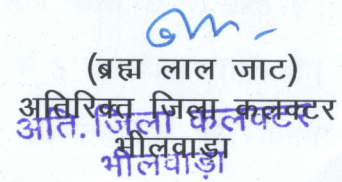 (ब्रह्म लाल जाट)
अतिरिक्त जिला कलक्टर
अति. जिला कलक्टर
भीलवाड़ा
भीलवाड़ा